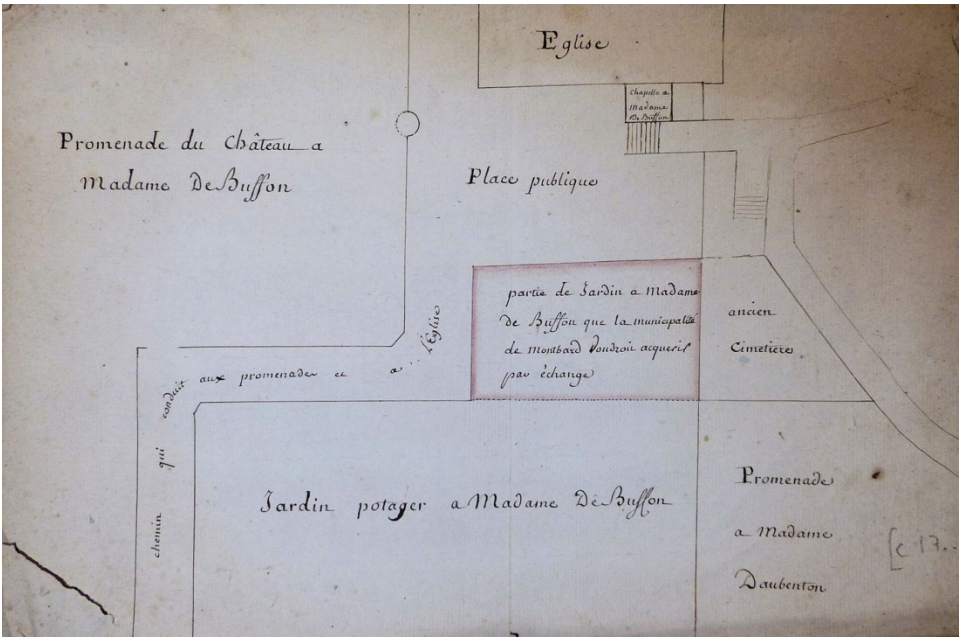 Eglise
chapelle a
Madame
De Buffon
Promenade du Château a
Madame De Buffon
Place publique
partie de Jardin a Madame
de Buffon que la municipalité
de montbard Voudroit acquerir
par échange
ancien
Cimetiere
chemin qui conduit aux promenades et a l'Eglise
Jardin potager a Madame De Buffon
Promenade
a Madame
Daubenton